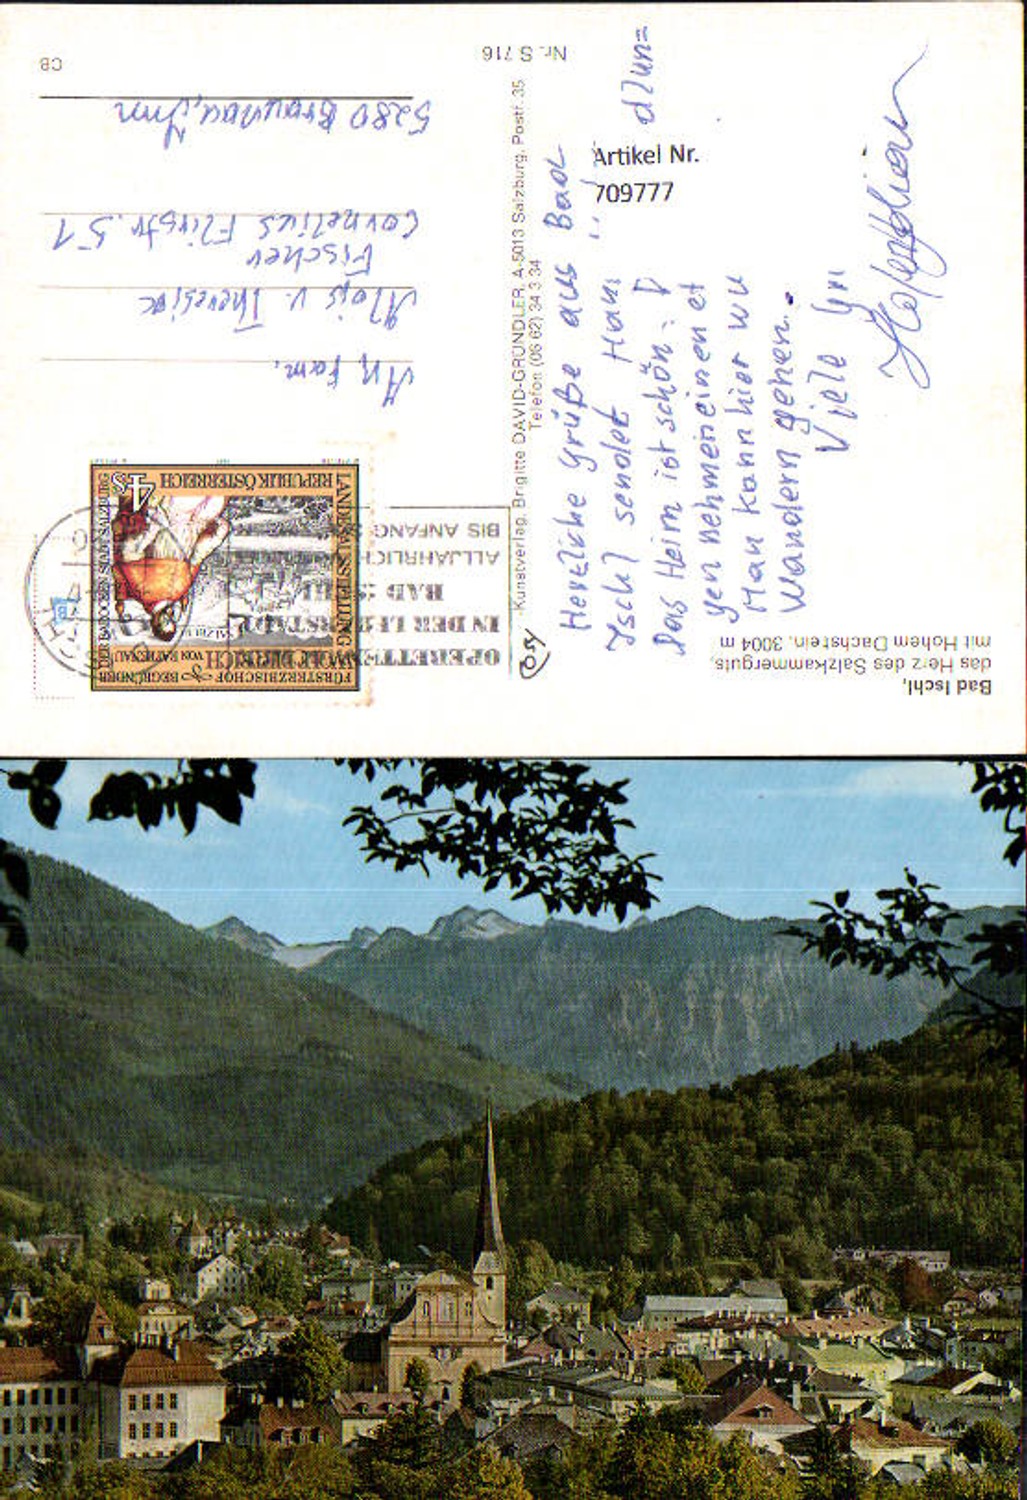 Bad Ischl,
das Herz des Salzkammerguts,
mit Hohem Dachstein, 3004 m
Herzliche Grüße aus Bad
Ischl sendet Hans
Das Heim ist schön.
gen nehmen einen et
Man kann hier wu
Wandern gehen.
Viele
dlun=
Artikel Nr.
709777
Kunstverlag, Brigitte DAVID-GRÜNDLER, A-5013 Salzburg, Postf. 35
Telefon (06 62) 34 3 34
Nr. S 716
CB
OPERETTENWOCHEN
IN DER LEHARSTADT
BAD ISCHL
ALLJÄHRLICH
BIS ANFANG
FÜRSTERZBISCHOF
WOLF DIETRICH
VON RAITENAU
BEGRÜNDER
DER BAROCKEN STADT SALZBURG
LANDESAUSSTELLUNG
SALZBURG
REPUBLIK ÖSTERREICH
4S
An Fam.
Alois u. Theresia
Fischer
Cornelius Flirstr. 51
5280 Braunau, Inn